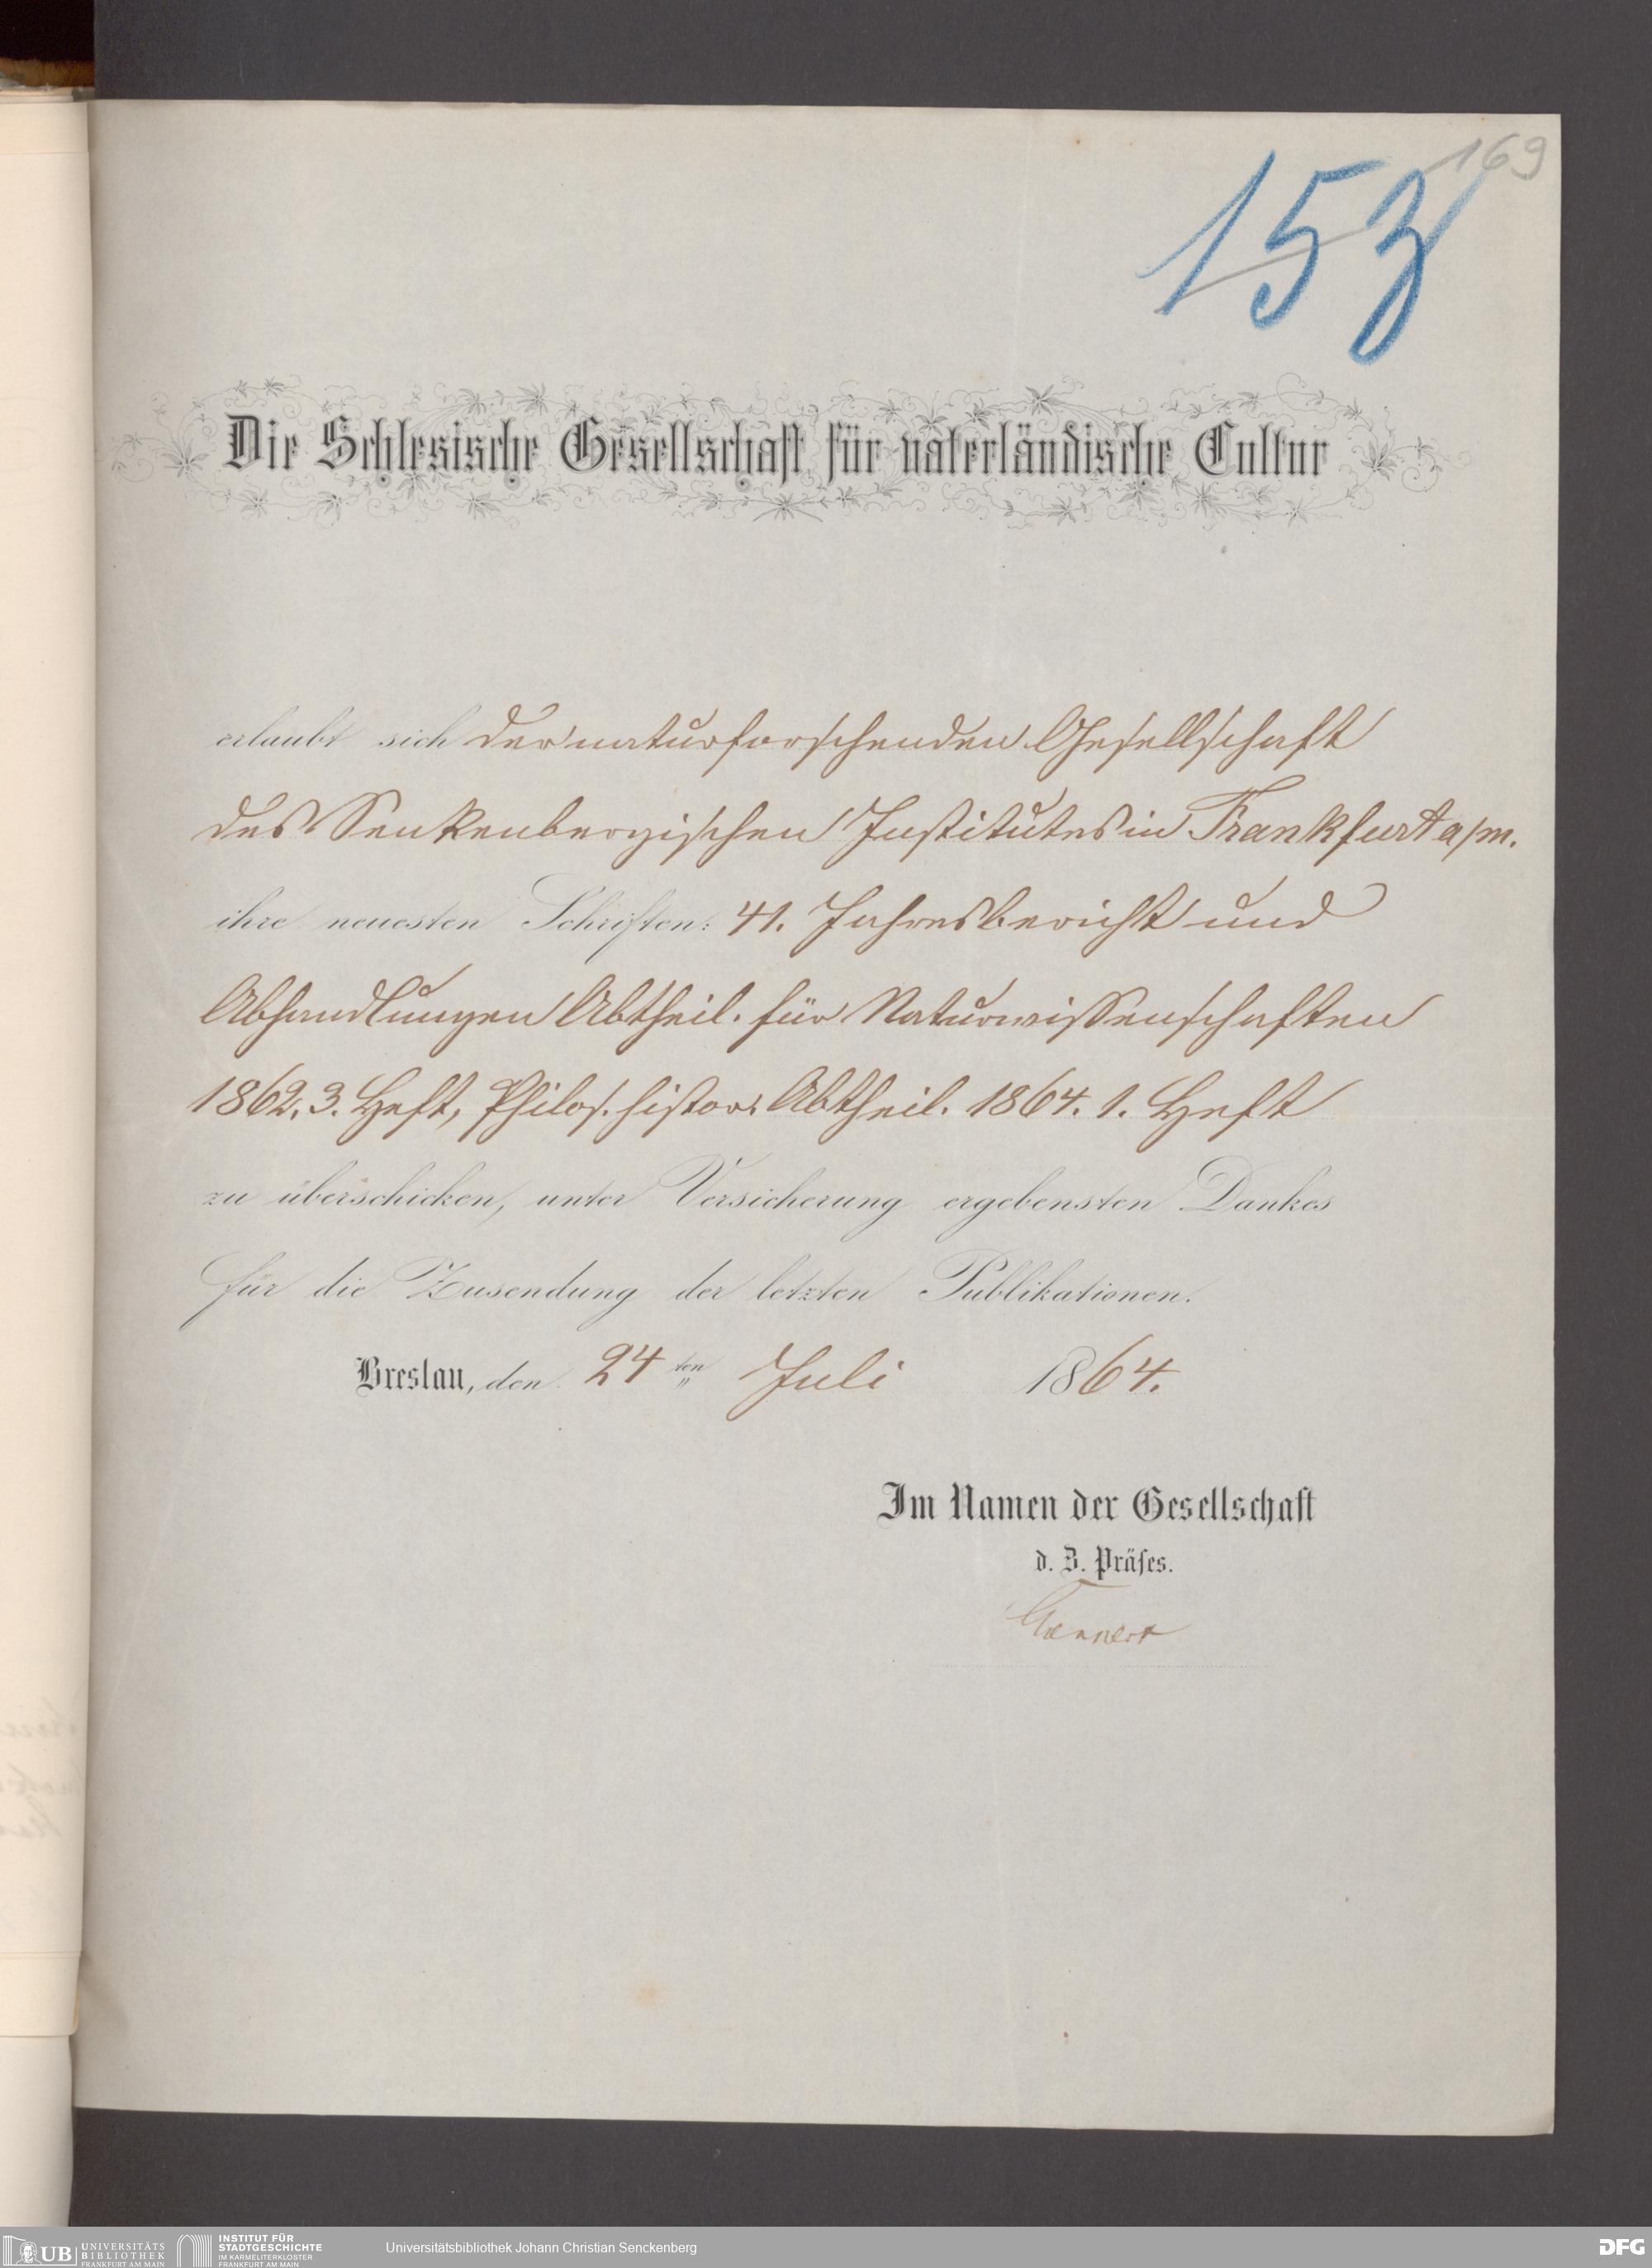 169
153
Die Schlesische Gesellschaft für vaterländische Cultur
erlaubt sich der naturforschenden Gesellschaft
des Senkenbergischen Institutes in Frankfurt a/m.
ihre neuesten Schriften: 41. Jahresbericht und
Abhandlungen Abtheil. für Naturwissenschaften
1862. 3. Heft, Philos. histor. Abtheil. 1864. 1. Heft
zu überschicken, unter Versicherung ergebensten Dankes
für die Zusendung der letzten Publikationen.
Breslau, den 24ten Juli 1864.
Im Namen der Gesellschaft
d. Z. Präses.
UB UNIVERSITÄTS BIBLIOTHEK FRANKFURT AM MAIN
INSTITUT FÜR STADTGESCHICHTE IM KARMELITERKLOSTER FRANKFURT AM MAIN
Universitätsbibliothek Johann Christian Senckenberg
DFG